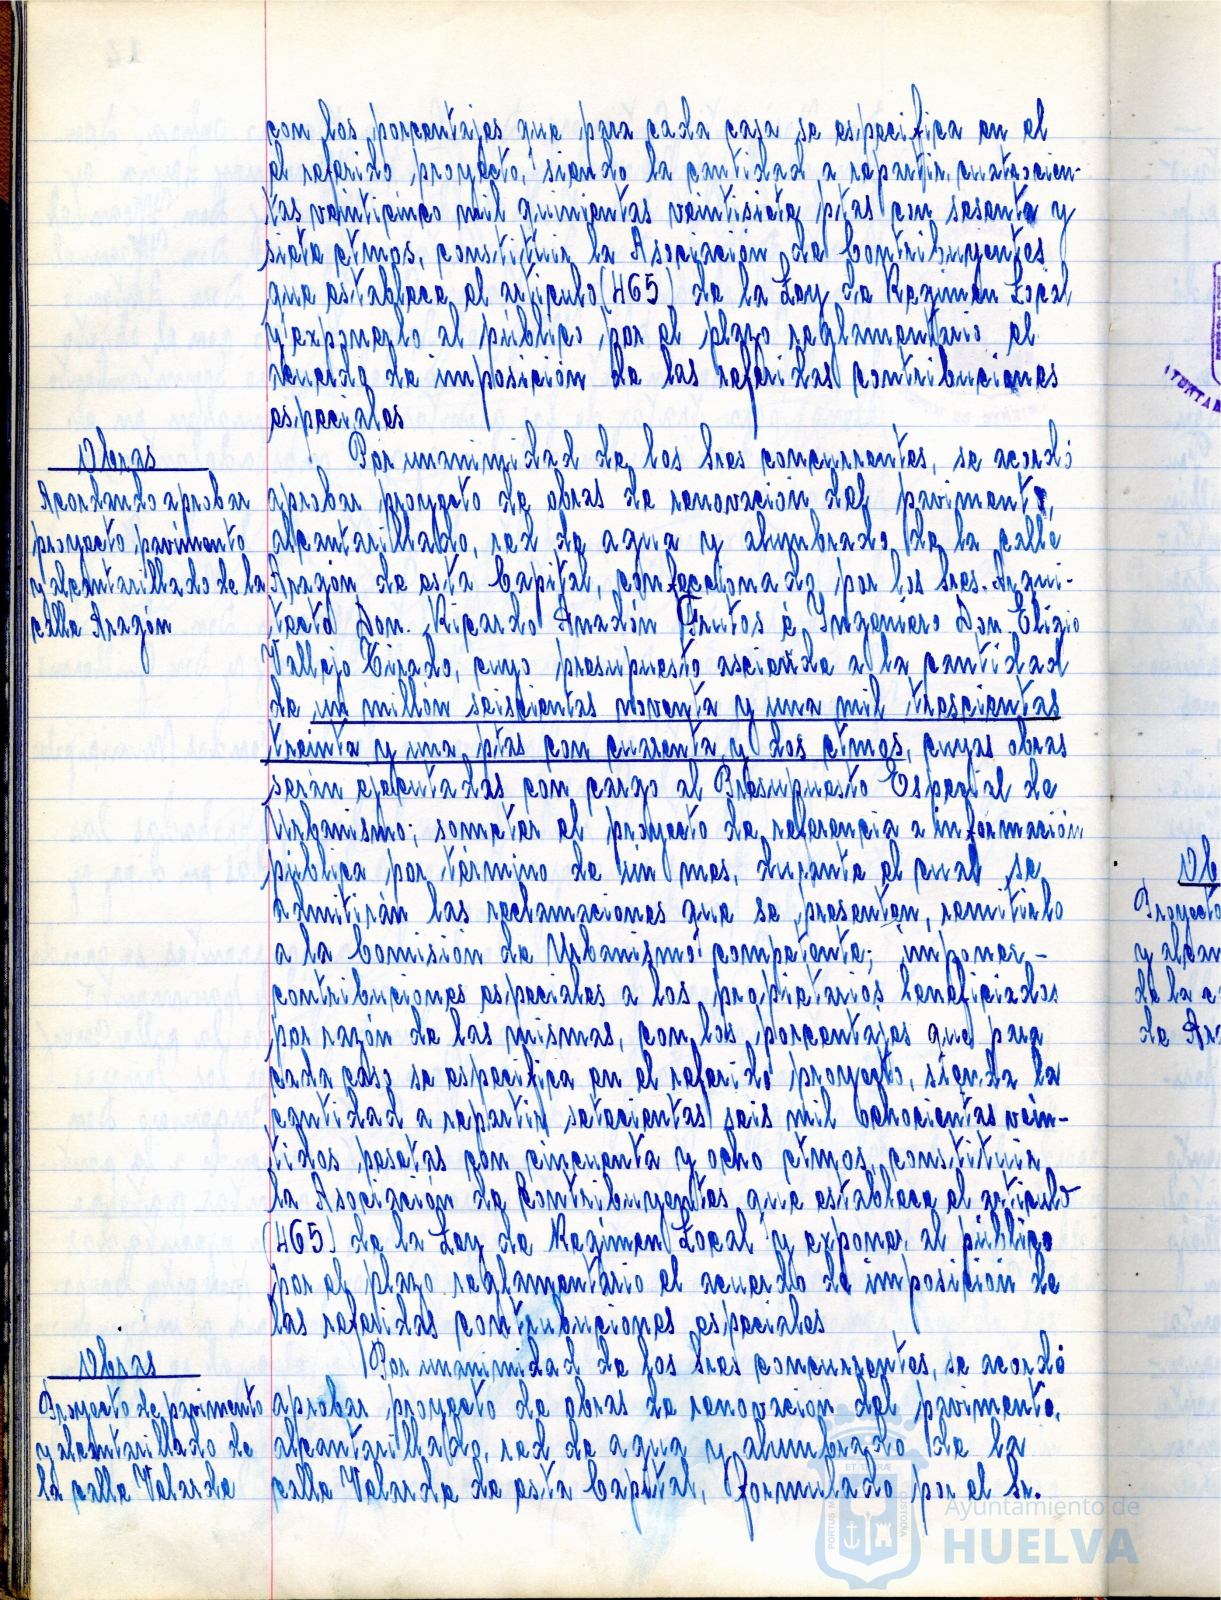 con los porcentajes que para cada casa se especifica en el
el referido proyecto, siendo la cantidad a repartir cuatrocien-
tas veinticinco mil quinientas veintisiete ptas con sesenta y
siete ctmos, constituir la Asociación de Contribuyentes
que establece el artículo (465) de la Ley de Regimen Local
y exponerlo al público por el plazo reglamentario el
acuerdo de imposición de las referidas contribuciones
especiales
Obras
Acordando aprobar
proyecto pavimento
y alcantarillado de la
calle Aragón
Por unanimidad de los Sres concurrentes, se acordó
aprobar proyecto de obras de renovación del pavimento,
alcantarillado, red de agua y alumbrado de la calle
Aragón de esta Capital, confeccionado por los Sres. Arqui-
tecto Don. Ricardo Anadón Frutos é Ingeniero Don Eligio
Vallejo Tirado, cuyo presupuesto asciende a la cantidad
de un millón seiscientas noventa y una mil trescientas
treinta y una ptas con cuarenta y dos ctmos, cuyas obras
serán ejecutadas con cargo al Presupuesto Especial de
Urbanismo; someter el proyecto de referencia a información
pública por término de un mes, durante el cual se
admitirán las reclamaciones que se presenten, remitirlo
a la Comisión de Urbanismo competente; imponer-
contribuciones especiales a los propietarios beneficiados
por razón de las mismas, con los porcentajes que para
cada caso se especifica en el referido proyecto, siendo la
cantidad a repartir setecientas seis mil ochocientas vein-
tidos pesetas con cincuenta y ocho ctmos, constituir
la Asociación de Contribuyentes que establece el artículo
(465) de la Ley de Regimen Local y exponer al público
por el plazo reglamentario el acuerdo de imposición de
las referidas contribuciones especiales
Obras
Proyecto de pavimento
y alcantarillado de
la calle Velarde
Por unanimidad de los Sres concurrentes, se acordó
aprobar proyecto de obras de renovación del pavimento,
alcantarillado, red de agua y alumbrado de la
calle Velarde de esta Capital, formulado por el Sr.
Ayuntamiento de
HUELVA